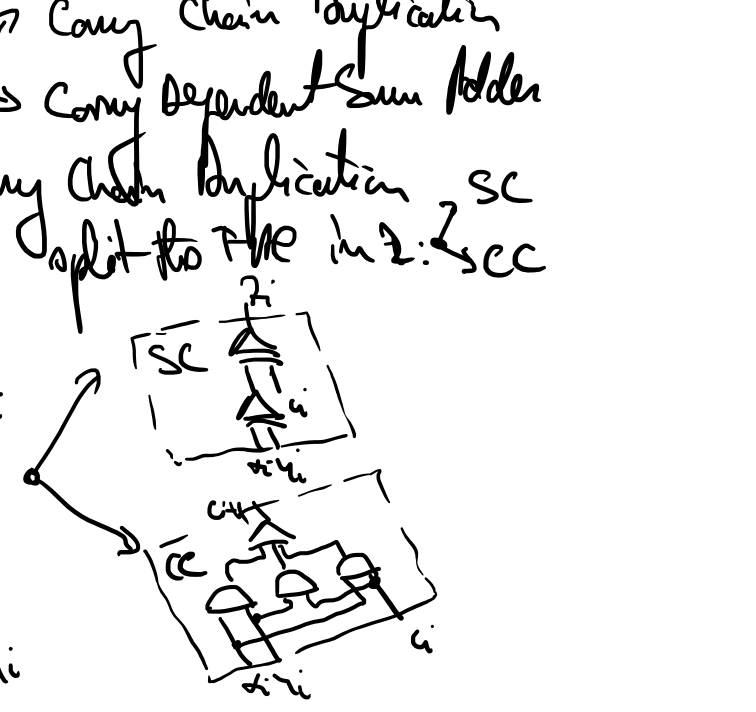 Carry Chain Duplication
Carry Dependent Sum Adder
Chain Duplication
split the in 2: SC
CC
zi
SC
ci
xi yi
ci+1
CC
ci
xi yi